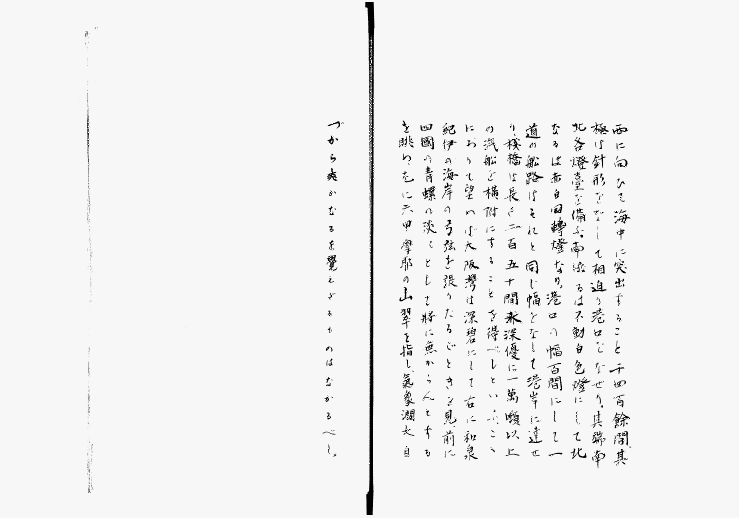 西に向ひて海中に突出すること千四百餘間其
極は針形をなして相迫り港口をなせり其端南
北各燈臺を備ふ南なるは不動白色燈にして北
なるは赤白回轉燈なり港口の幅百間にして一
道の船路はそれと同じ幅をなして港岸に達せ
り棧橋は長さ二百五十間水深優に一萬噸以上
の汽船を横附にすることを得べしといふこゝ
におりて望めば大阪灣は深碧にして右に和泉
紀伊の海岸の弓弦を張りたるごときを見前に
四國の青螺の淡くとして將に無からんとする
を眺め左に六甲摩耶の山翠を指し氣象濶大自
づから爽かなるを覺えざるものはなかるべし。